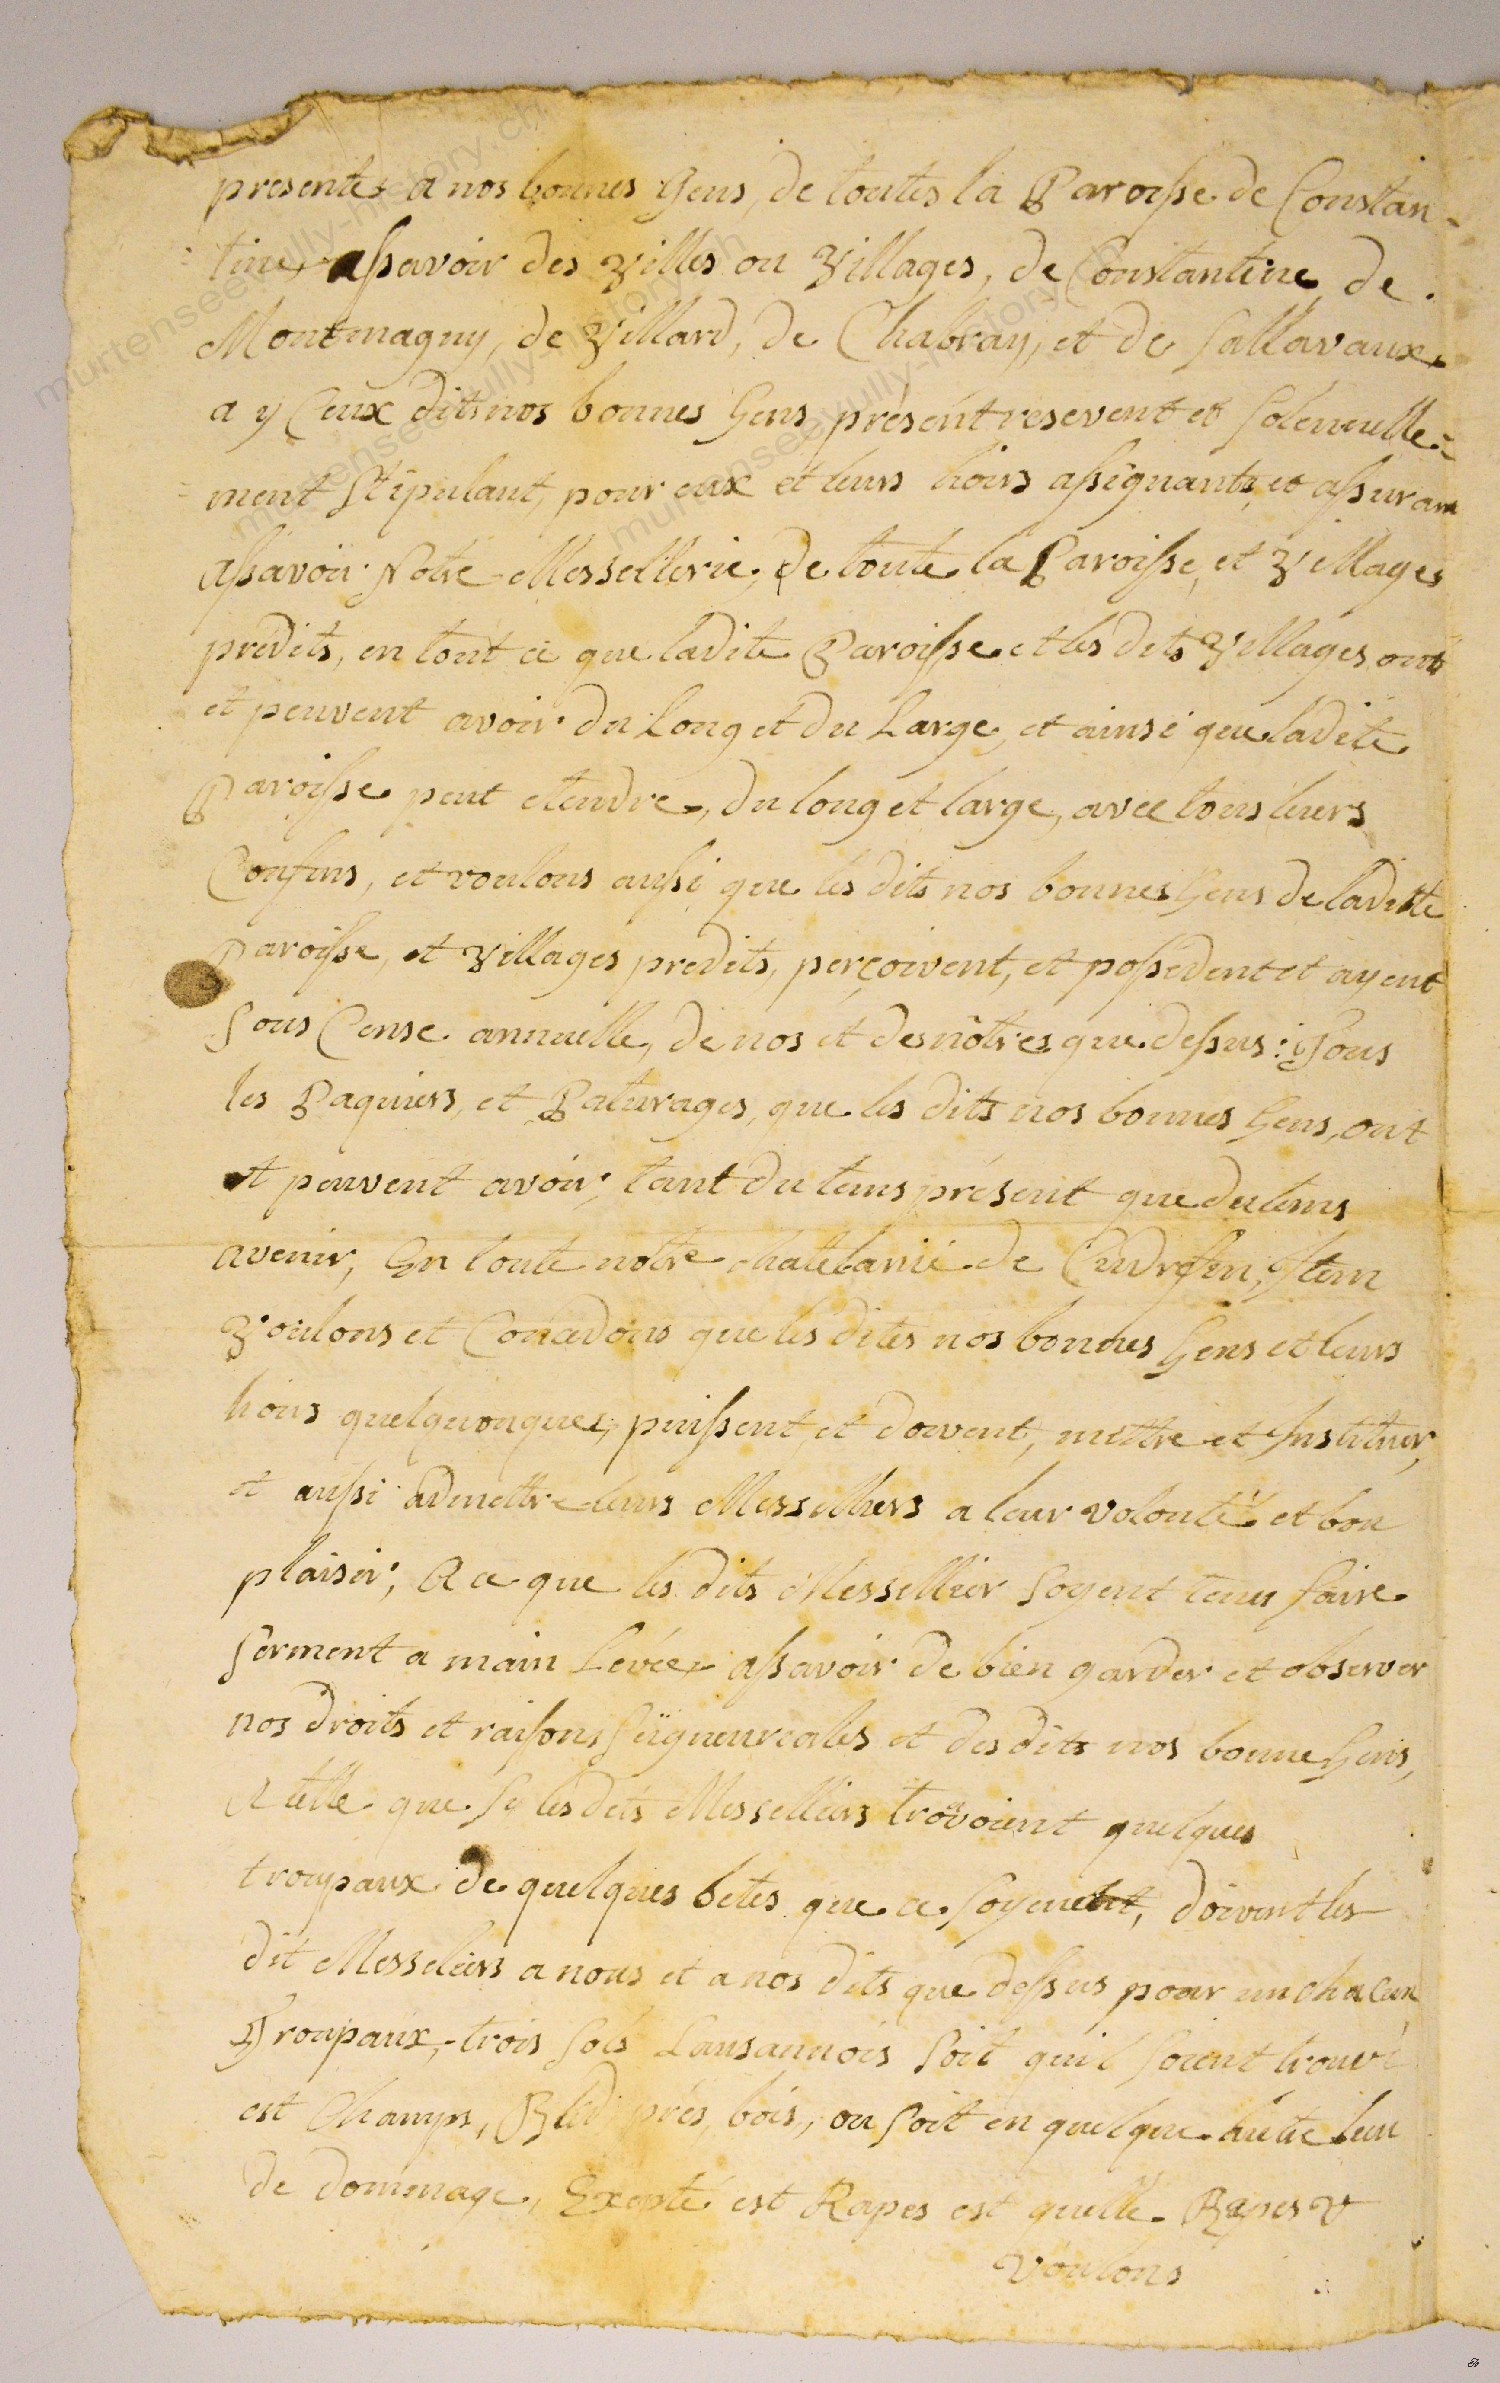 presentes a nos bonnes Gens, de toutes la Paroisse de Constan-
tine, assavoir des Villes ou Villages, de Constantine, de
Montmagny, de Villard, de Chabray, et de Sallavaux,
a y Ceux dits nos bonnes Gens présent resevent et Solennelle=
=ment Stipulant, pour eux et leurs hoirs assignants, et assurant
assavoir Notre Messellerie, de toute la Paroisse, et Villages
prédits, en tout ce que ladite Paroisse et les dits Villages ont
et peuvent avoir du Long et du Large, et ainsi que ladite
Paroisse peut etendre, du long et large, avec tous leurs
Confins, et voulons aussi que les dits nos bonnes Gens de laditte
Paroisse, et Villages predits, perçoivent, et possedent et ayent
Sous Cense annuelle, de nos et des nôtres que dessus: Tous
les Paquiers, et Paturages, que les dits nos bonnes Gens, ont
et peuvent avoir, tant du tems présent que du tems
avenir, En toute notre chatelanie de Cudrefin, Item
Voulons et Concedons que les dites nos bonnes Gens et leurs
hoirs quelquonques, puissent, et doivent, mettre et Instituer,
et aussi admettre leurs Messelliers a leur volonté et bon
plaisir, A ce que les dits Messellier soyent tenu faire
Serment a main Levée, assavoir de bien garder et observer
nos droits et raisons Seigneureales et des dits nos bonne Gens,
A telle que sy les dits Messelliers trouvoient quelques
troupaux de quelques betes que ce soyent, doivent les
dit Messeliers a nous et a nos dits que dessus pour un chacun
Troupaux, trois Sols Lausannois Soit quil soient trouvé
est Champs, Bled, prés, bois, ou soit en quelque autre lieu
de dommage, Excepté est Rapes est quelle Rapes
Voulons
murtenseevully-history.ch
murtenseevully-history.ch
murtenseevully-history.ch